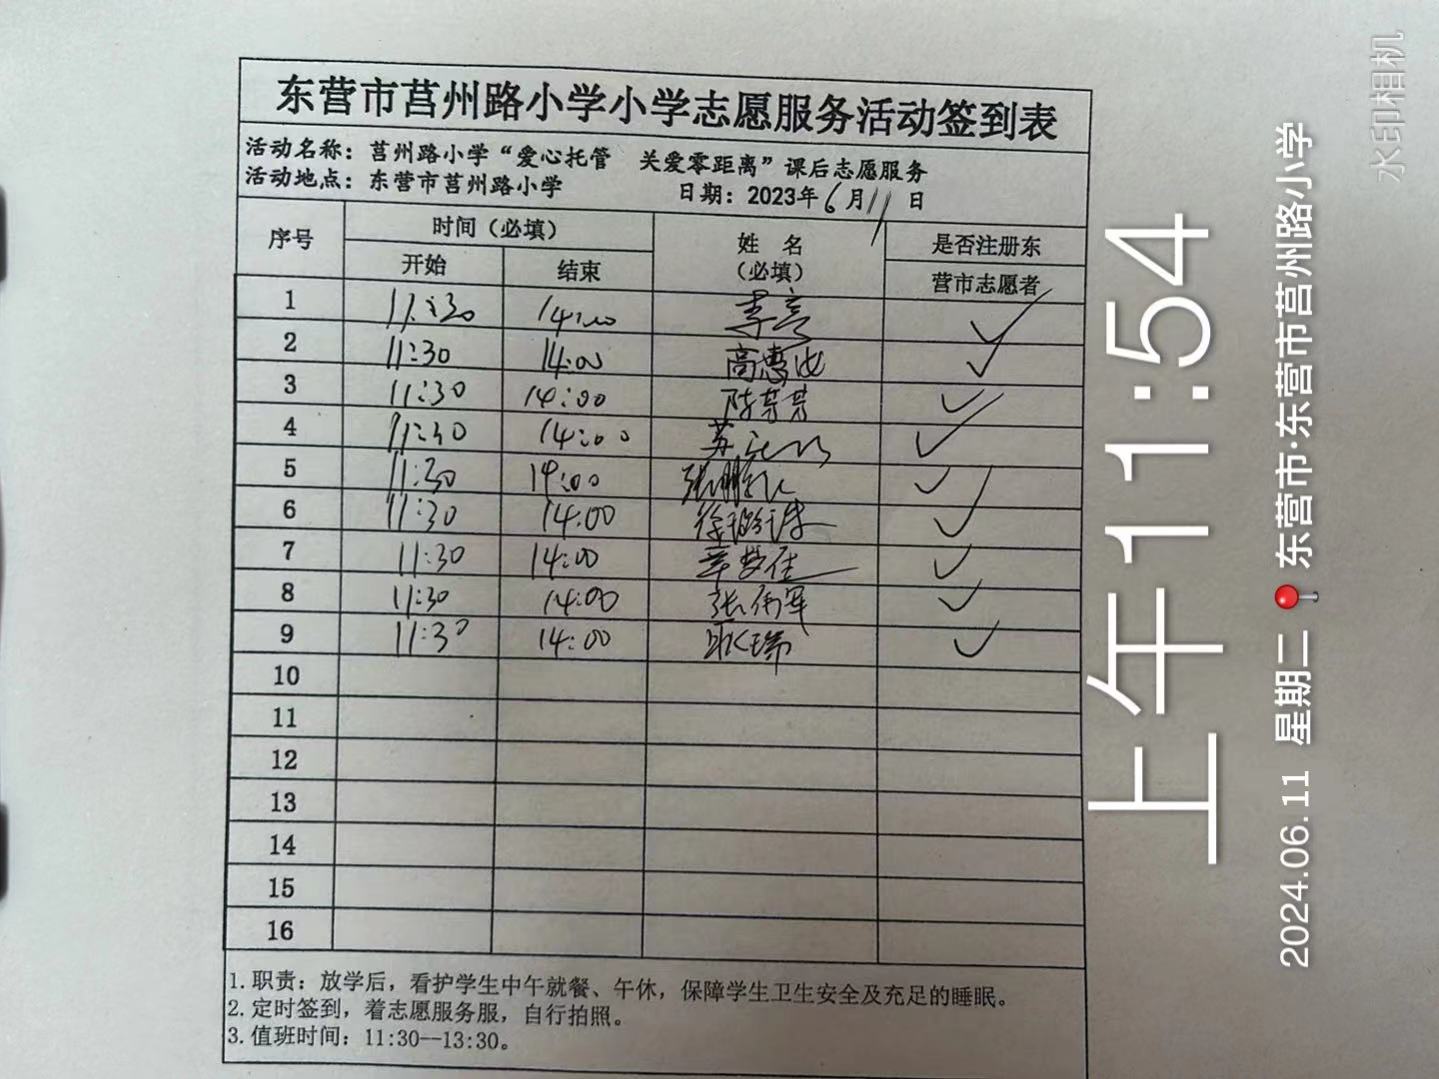 东营市莒州路小学小学志愿服务活动签到表
活动名称：莒州路小学“爱心托管 关爱零距离”课后志愿服务
活动地点：东营市莒州路小学 日期：2023年6月11日
序号 时间（必填） 姓 名（必填） 是否注册东营市志愿者
开始 结束
1 11:30 14:00 李亮 ✓
2 11:30 14:00 高惠 ✓
3 11:30 14:00 陈芳芳 ✓
4 11:30 14:00 苏 ✓
5 11:30 14:00 张鹏 ✓
6 11:30 14:00 徐 ✓
7 11:30 14:00 ✓
8 11:30 14:00 张伟军 ✓
9 11:30 14:00 瑞 ✓
10
11
12
13
14
15
16
1.职责：放学后，看护学生中午就餐、午休，保障学生卫生安全及充足的睡眠。
2.定时签到，着志愿服务服，自行拍照。
3.值班时间：11:30--13:30。
上午11:54
2024.06.11 星期二 东营市·东营市莒州路小学
水印相机